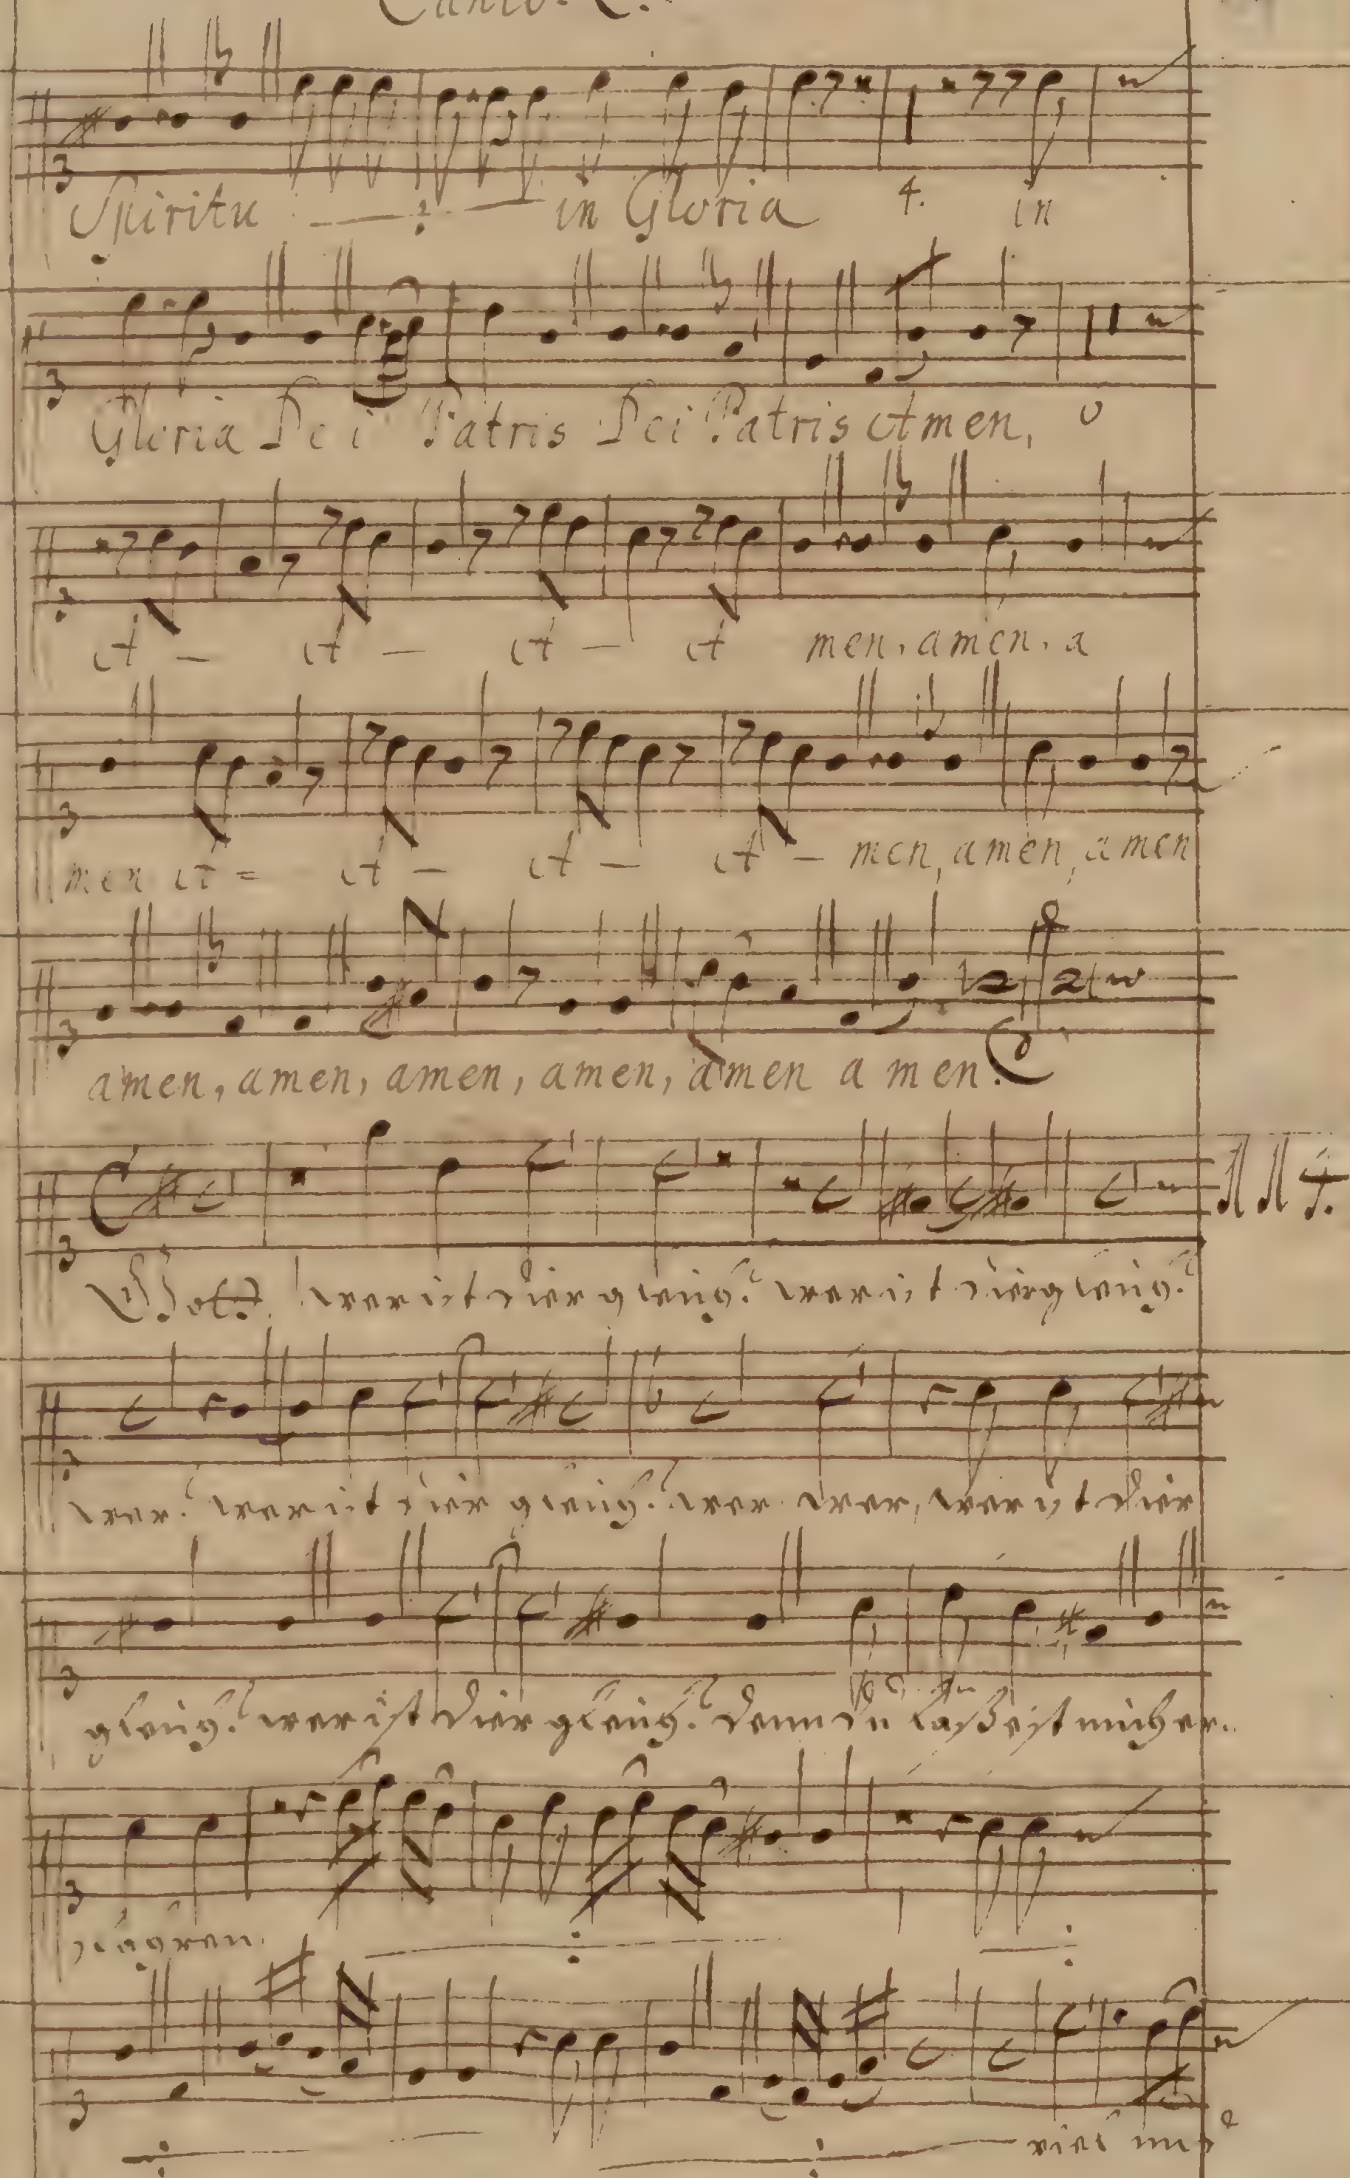 Canto. 2.
Spiritu in Gloria 4. in
Gloria Dei Patris Dei Patris Amen,
A – A – A – A men. amen. a
men A = A – A – A – men, amen, amen
amen, amen, amen, amen, amen amen.
114.
Gott wer ist dier gleich? wer ist dier gleich?
wer? wer ist dier gleich? wer wer, wer ist dier
gleich? wer ist dier gleich? denn du laßest mich er..
viel und